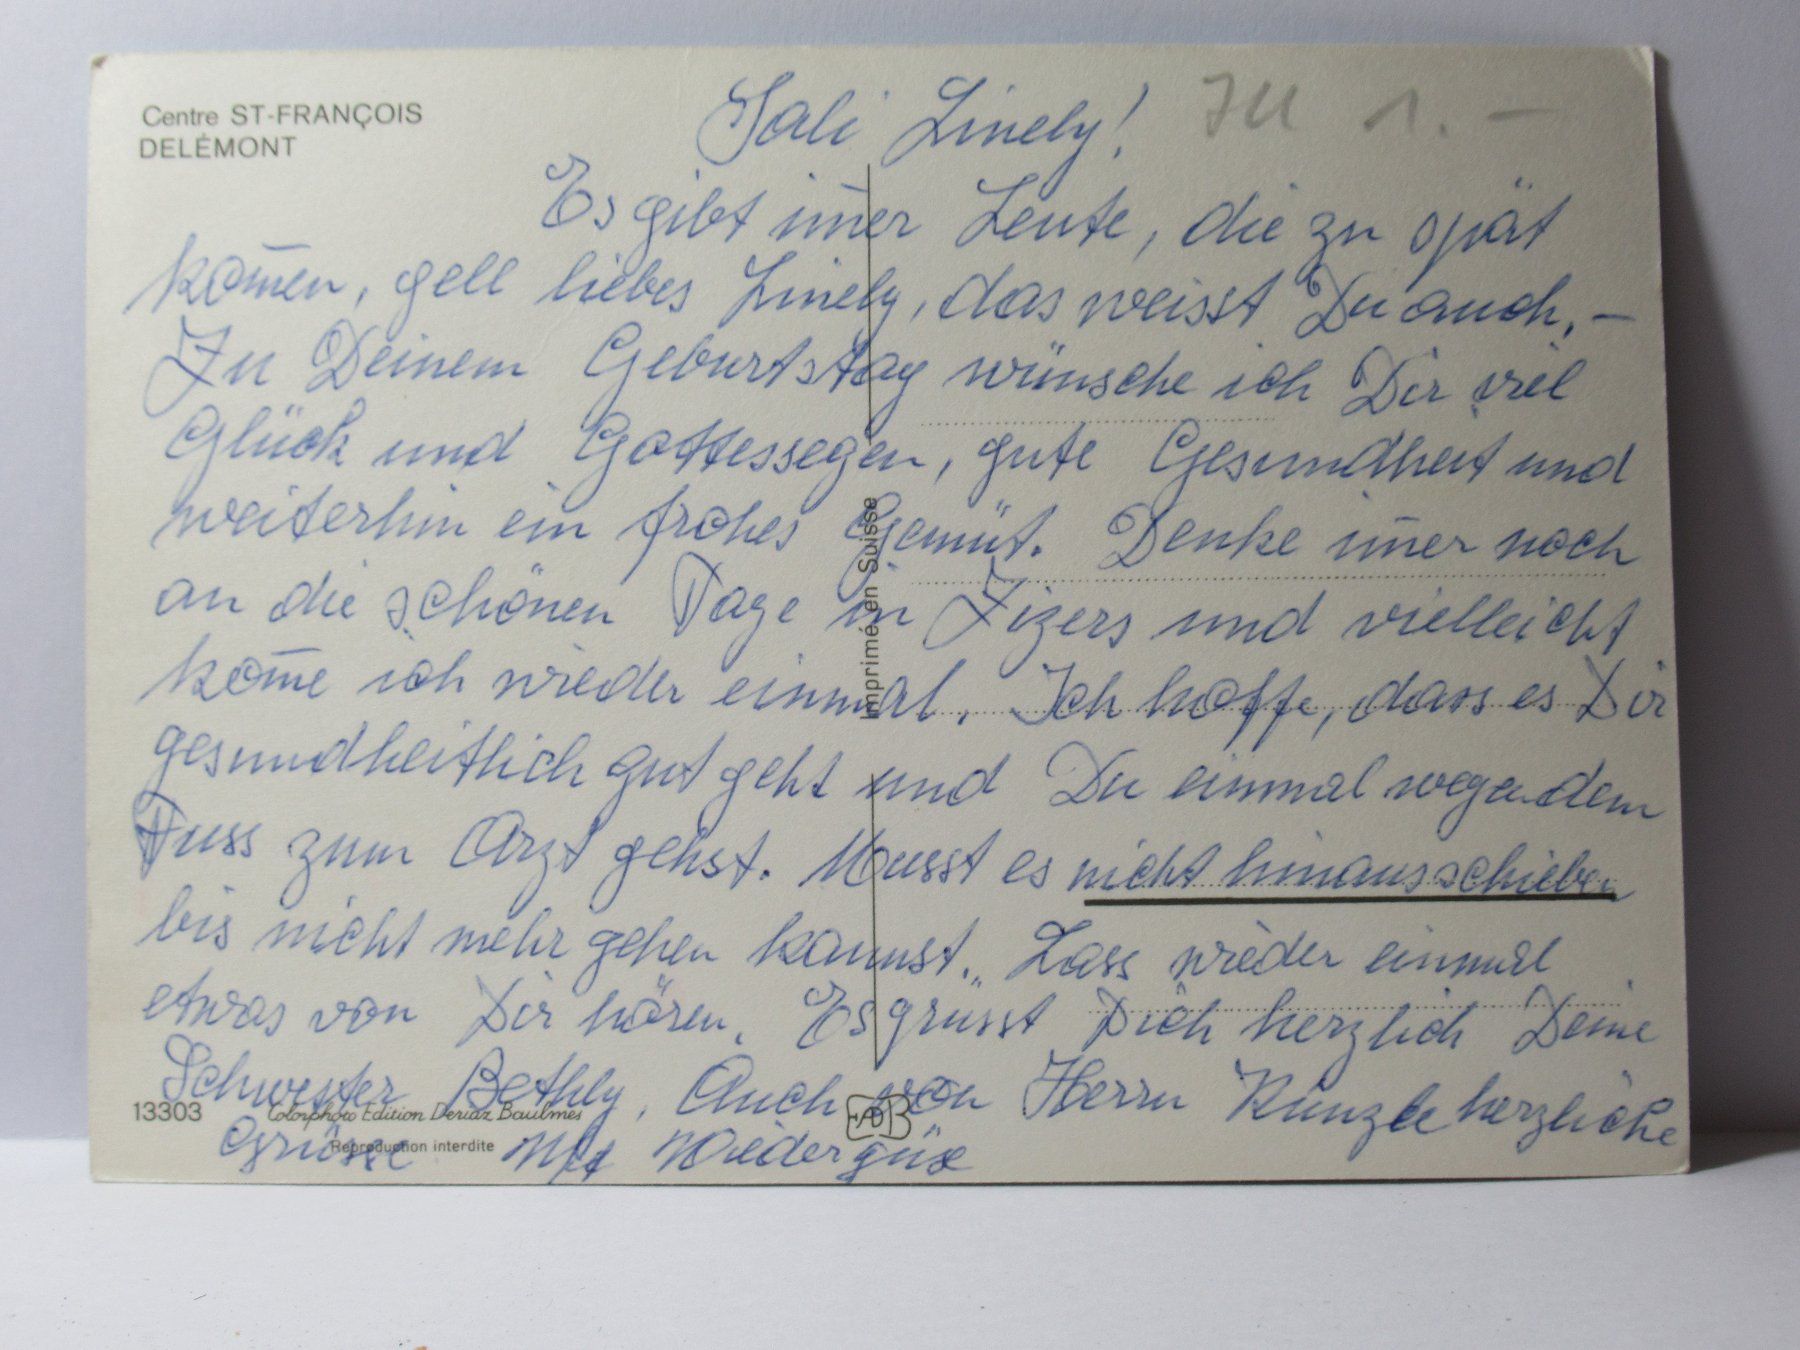 Centre ST-FRANÇOIS
DELÉMONT
JU 1.–
Sali Linely!
Es gibt im̅er Leute, die zu spät
kom̅en, gell liebes Linely, das weisst Du auch. –
Zu Deinem Geburtstag wünsche ich Dir viel
Glück und Gottessegen, gute Gesundheit und
weiterhin ein frohes Gemüt. Denke im̅er noch
an die schönen Tage in Zizers und vielleicht
kom̅e ich wieder einmal. Ich hoffe, dass es Dir
gesundheitlich gut geht und Du einmal wegen dem
Fuss zum Arzt gehst. Musst es nicht hinausschieben
bis nicht mehr gehen kannst. Lass wieder einmal
etwas von Dir hören. Es grüsst Dich herzlich Deine
Schwester Bethly. Auch von Herrn Künzle herzliche
Grüsse
Imprimé en Suisse
13303
Colorphoto Edition Deriaz Baulmes
Reproduction interdite